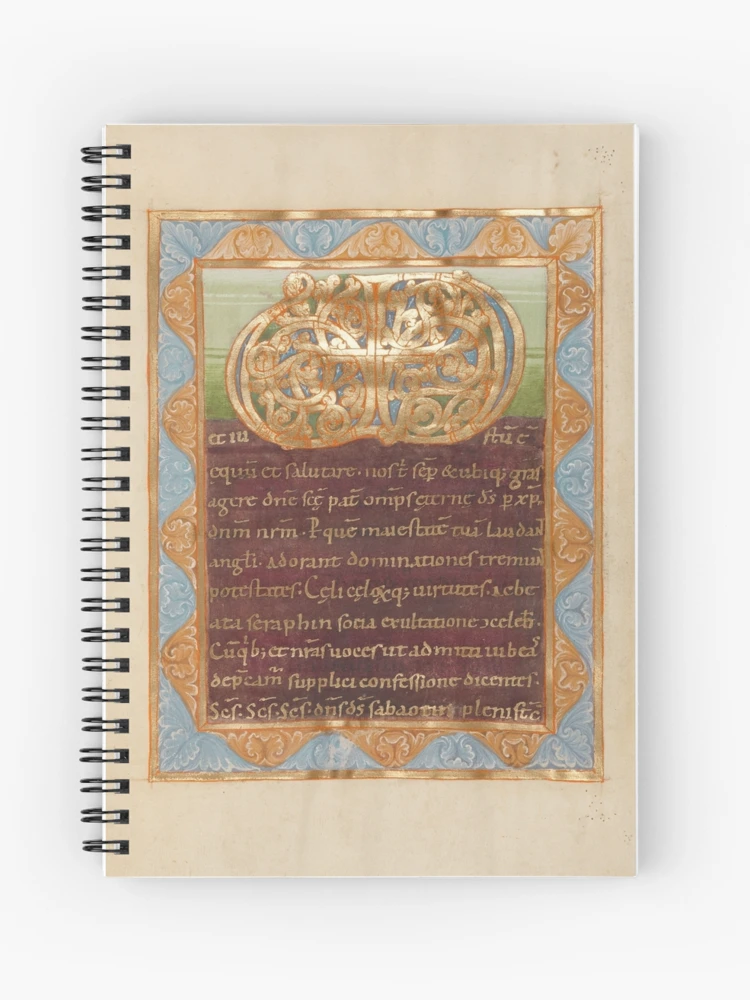 et iu stū ē
equū et salutare. nos t̄ sēp &ubiq; gr̄as
agere dn̄e sc̄ę pat̄ om̄ps ęterne d̄s p̄ xp̄.
dnm̄ nrm̄. P quē maiestatē tuā laudant
angli. adorant dominationes tremunt
potestates. Cęli cęloꝝq; uirtutes. ac be
ata seraphin socia exultatione ↄcelebr̄.
Cū qͥb; et nr̄as uoces ut admitti iubeas
dep̄cam̄ supplici confessione dicentes.
Sc̄s. Sc̄s. Sc̄s. dn̄s d̄s sabaoth pleni st̄ c̄